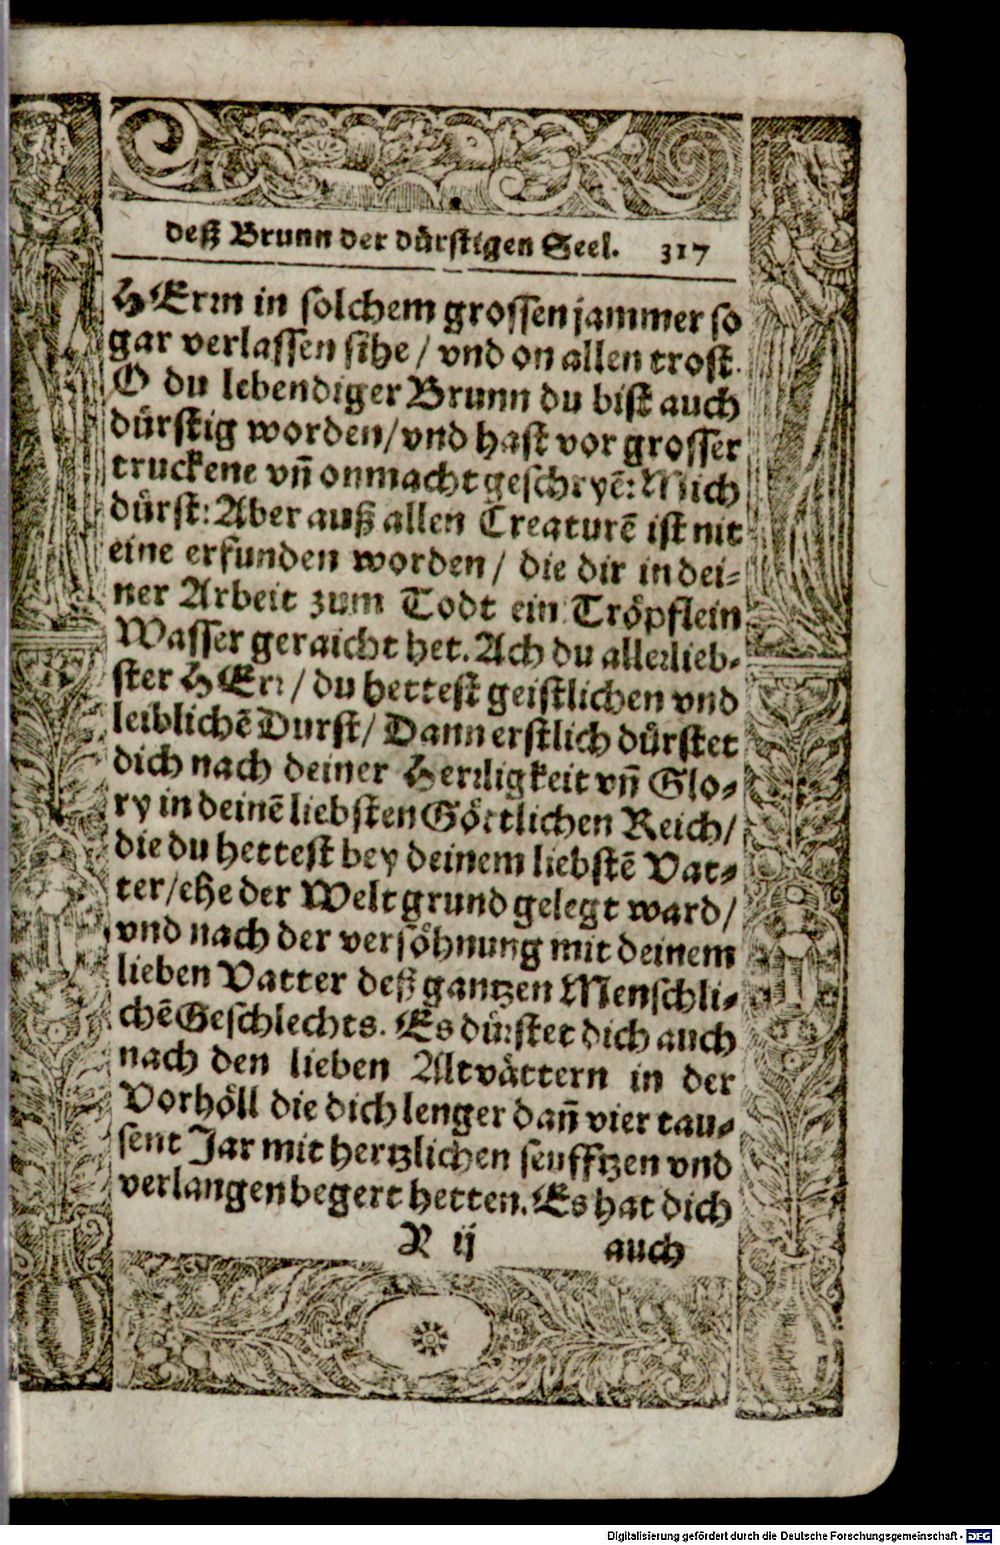 deß Brunn der dürstigen Seel. 317
HErrn in solchem grossen jammer so
gar verlassen sihe / vnd on allen trost.
O du lebendiger Brunn du bist auch
dürstig worden/vnd hast vor grosser
truckene vñ onmacht geschryẽ: Mich
dürst: Aber auß allen Creaturẽ ist nit
eine erfunden worden / die dir in dei=
ner Arbeit zum Todt ein Tröpflein
Wasser geraicht het. Ach du allerlieb=
ster HErr / du hettest geistlichen vnd
leiblichẽ Durst/ Dann erstlich dürstet
dich nach deiner Herrligkeit vñ Glo=
ry in deinẽ liebsten Göttlichen Reich/
die du hettest bey deinem liebstẽ Vat=
ter/ehe der Welt grund gelegt ward/
vnd nach der versöhnung mit deinem
lieben Vatter deß gantzen Menschli=
chẽ Geschlechts. Es dürstet dich auch
nach den lieben Altvättern in der
Vorhöll die dich lenger dañ vier tau=
sent Jar mit hertzlichen seufftzen vnd
verlangen begert hetten. Es hat dich
R ij auch
Digitalisierung gefördert durch die Deutsche Forschungsgemeinschaft - DFG